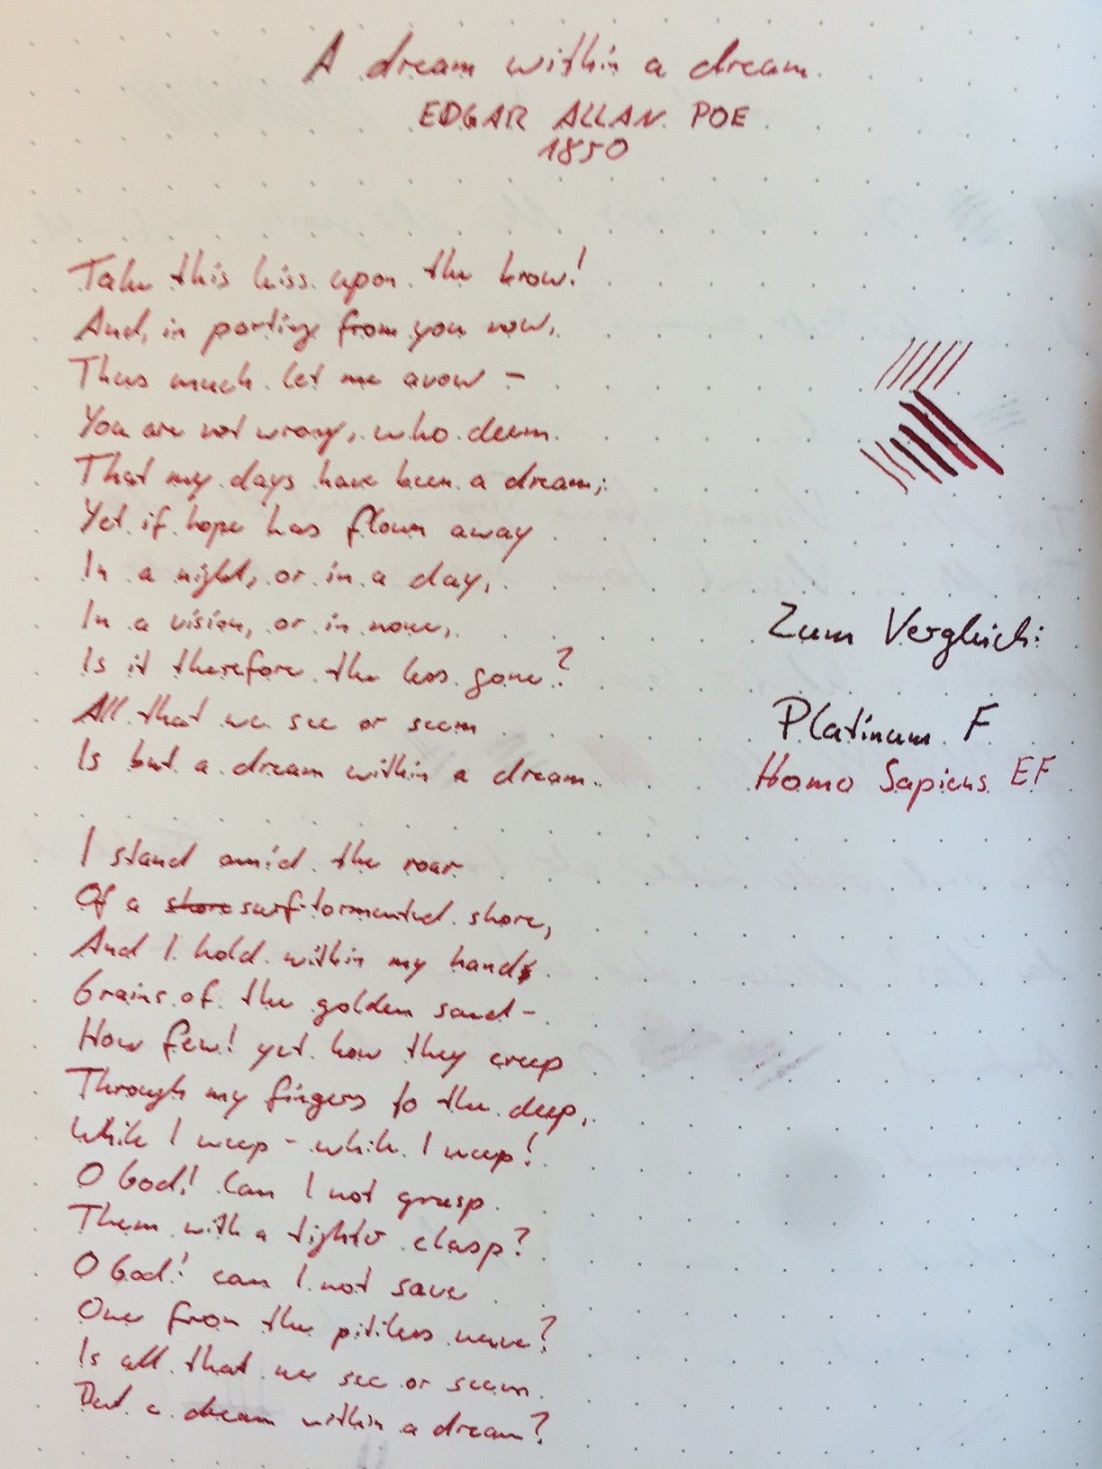 A dream within a dream.
EDGAR ALLAN POE
1850
Take this kiss upon the brow!
And, in parting from you now,
Thus much let me avow –
You are not wrong, who deem
That my days have been a dream;
Yet if hope has flown away
In a night, or in a day,
In a vision, or in none,
Is it therefore the less gone?
All that we see or seem
Is but a dream within a dream.
I stand amid the roar
Of a shore surf-tormented shore,
And I hold within my hand
Grains of the golden sand –
How few! yet how they creep
Through my fingers to the deep,
While I weep – while I weep!
O God! Can I not grasp
Them with a tighter clasp?
O God! can I not save
One from the pitiless wave?
Is all that we see or seem
But a dream within a dream?
Zum Vergleich:
Platinum F
Homo Sapiens EF